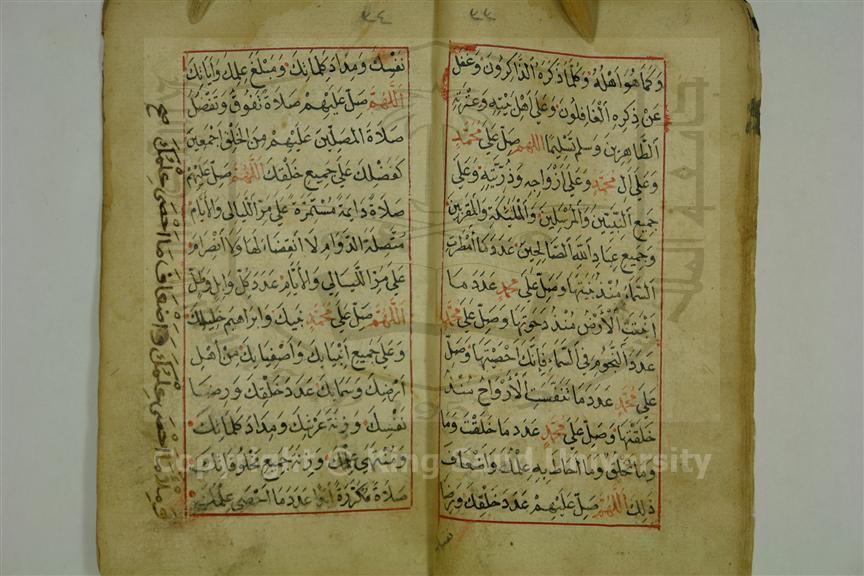 وَكَمَا هُوَ اَهْلُهُ وَكُلَّمَا ذَكَرَهُ الذَّاكِرُونَ وَغَفَلَ
عَنْ ذِكْرِهِ الْغَافِلُونَ وَعَلَى اَهْلِ بَيْتِهِ وَعِتْرَتِهِ
الطَّاهِرِينَ وَسَلَّمَ تَسْلِيمًا اَللّٰهُمَّ صَلِّ عَلَى مُحَمَّدٍ
وَعَلَى اٰلِ مُحَمَّدٍ وَعَلَى اَزْوَاجِهِ وَذُرِّيَّتِهِ وَعَلَى
جَمِيعِ النَّبِيِّينَ وَالْمُرْسَلِينَ وَالْمَلٰئِكَةِ وَالْمُقَرَّبِينَ
وَجَمِيعِ عِبَادِ اللهِ الصَّالِحِينَ عَدَدَ مَا اَمْطَرَتِ
السَّمَاءُ مُنْذُ بَنَيْتَهَا وَصَلِّ عَلَى مُحَمَّدٍ عَدَدَ مَا
اَنْبَتَتِ الْاَرْضُ مُنْذُ دَحَوْتَهَا وَصَلِّ عَلَى مُحَمَّدٍ
عَدَدَ النُّجُومِ فِى السَّمَاءِ فَاِنَّكَ اَحْصَيْتَهَا وَصَلِّ
عَلَى مُحَمَّدٍ عَدَدَ مَا تَنَفَّسَتِ الْاَرْوَاحُ مُنْذُ
خَلَقْتَهَا وَصَلِّ عَلَى مُحَمَّدٍ عَدَدَ مَا خَلَقْتَ وَمَا
وَمَا تَخْلُقُ وَمَا اَحَاطَ بِهِ عِلْمُكَ وَاَضْعَافَ
ذٰلِكَ اَللّٰهُمَّ صَلِّ عَلَيْهِمْ عَدَدَ خَلْقِكَ وَرِضَا
نَفْسِكَ وَمِدَادَ كَلِمَاتِكَ وَمَبْلَغَ عِلْمِكَ وَاٰيَاتِكَ
اَللّٰهُمَّ صَلِّ عَلَيْهِمْ صَلَاةً تَفُوقُ وَتَفْضُلُ
صَلَاةَ الْمُصَلِّينَ عَلَيْهِمْ مِنَ الْخَلْقِ اَجْمَعِينَ
كَفَضْلِكَ عَلَى جَمِيعِ خَلْقِكَ اَللّٰهُمَّ صَلِّ عَلَيْهِمْ
صَلَاةً دَائِمَةً مُسْتَمِرَّةً عَلَى مَرِّ اللَّيَالِى وَالْاَيَّامِ
مُتَّصِلَةَ الدَّوَامِ لَا انْقِضَاءَ لَهَا وَلَا انْصِرَامَ
عَلَى مَرِّ اللَّيَالِى وَالْاَيَّامِ عَدَدَ كُلِّ وَابِلٍ وَطَلٍّ
اَللّٰهُمَّ صَلِّ عَلَى مُحَمَّدٍ نَبِيِّكَ وَاِبْرَاهِيمَ خَلِيلِكَ
وَعَلَى جَمِيعِ اَنْبِيَائِكَ وَاَصْفِيَائِكَ مِنْ اَهْلِ
اَرْضِكَ وَسَمَائِكَ عَدَدَ خَلْقِكَ وَرِضَا
نَفْسِكَ وَزِنَةَ عَرْشِكَ وَمِدَادَ كَلِمَاتِكَ
وَمُنْتَهَى عِلْمِكَ وَزِنَةَ جَمِيعِ مَخْلُوقَاتِكَ
صَلَاةً مُكَرَّرَةً اَبَدًا عَدَدَ مَا اَحْصَى عِلْمُكَ
وَمِلْأَ مَا اَحْصَى عِلْمُكَ وَاَضْعَافَ مَا اَحْصَى عِلْمُكَ صح
Copyright © King Saud University